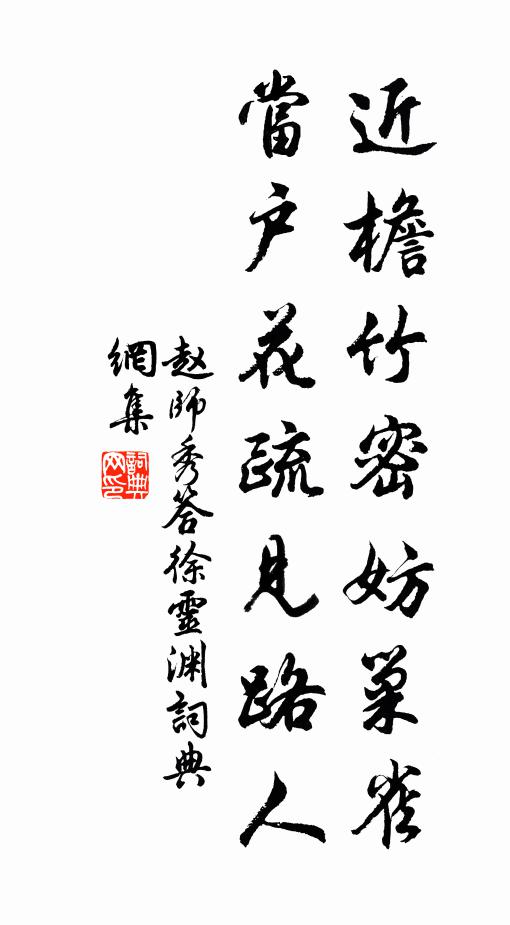 近檐竹密妨巢雀
當户花疏見路人
赵師秀答徐靈渊詞典
網集
詞典网印